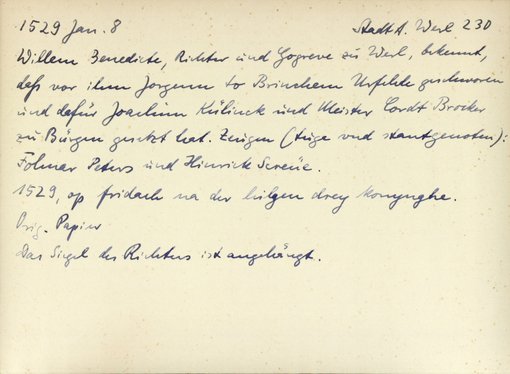 1529 Jan. 8 Stadt A. Werl 230
Willem Benedicte, Richter und Gogreve zu Werl, bekennt,
daß vor ihm Jorgenn to Brinchem Urfehde geschworen
und dafür Joachim Külinck und Meister Cordt Broker
zu Bürgen gesetzt hat. Zeugen (tuge vnd stantgenoten):
Folmar Peters und Hinrick
1529, op fridach na der hilgen drey konynghe.
Orig. Papier
Das Siegel des Richters ist angehängt.